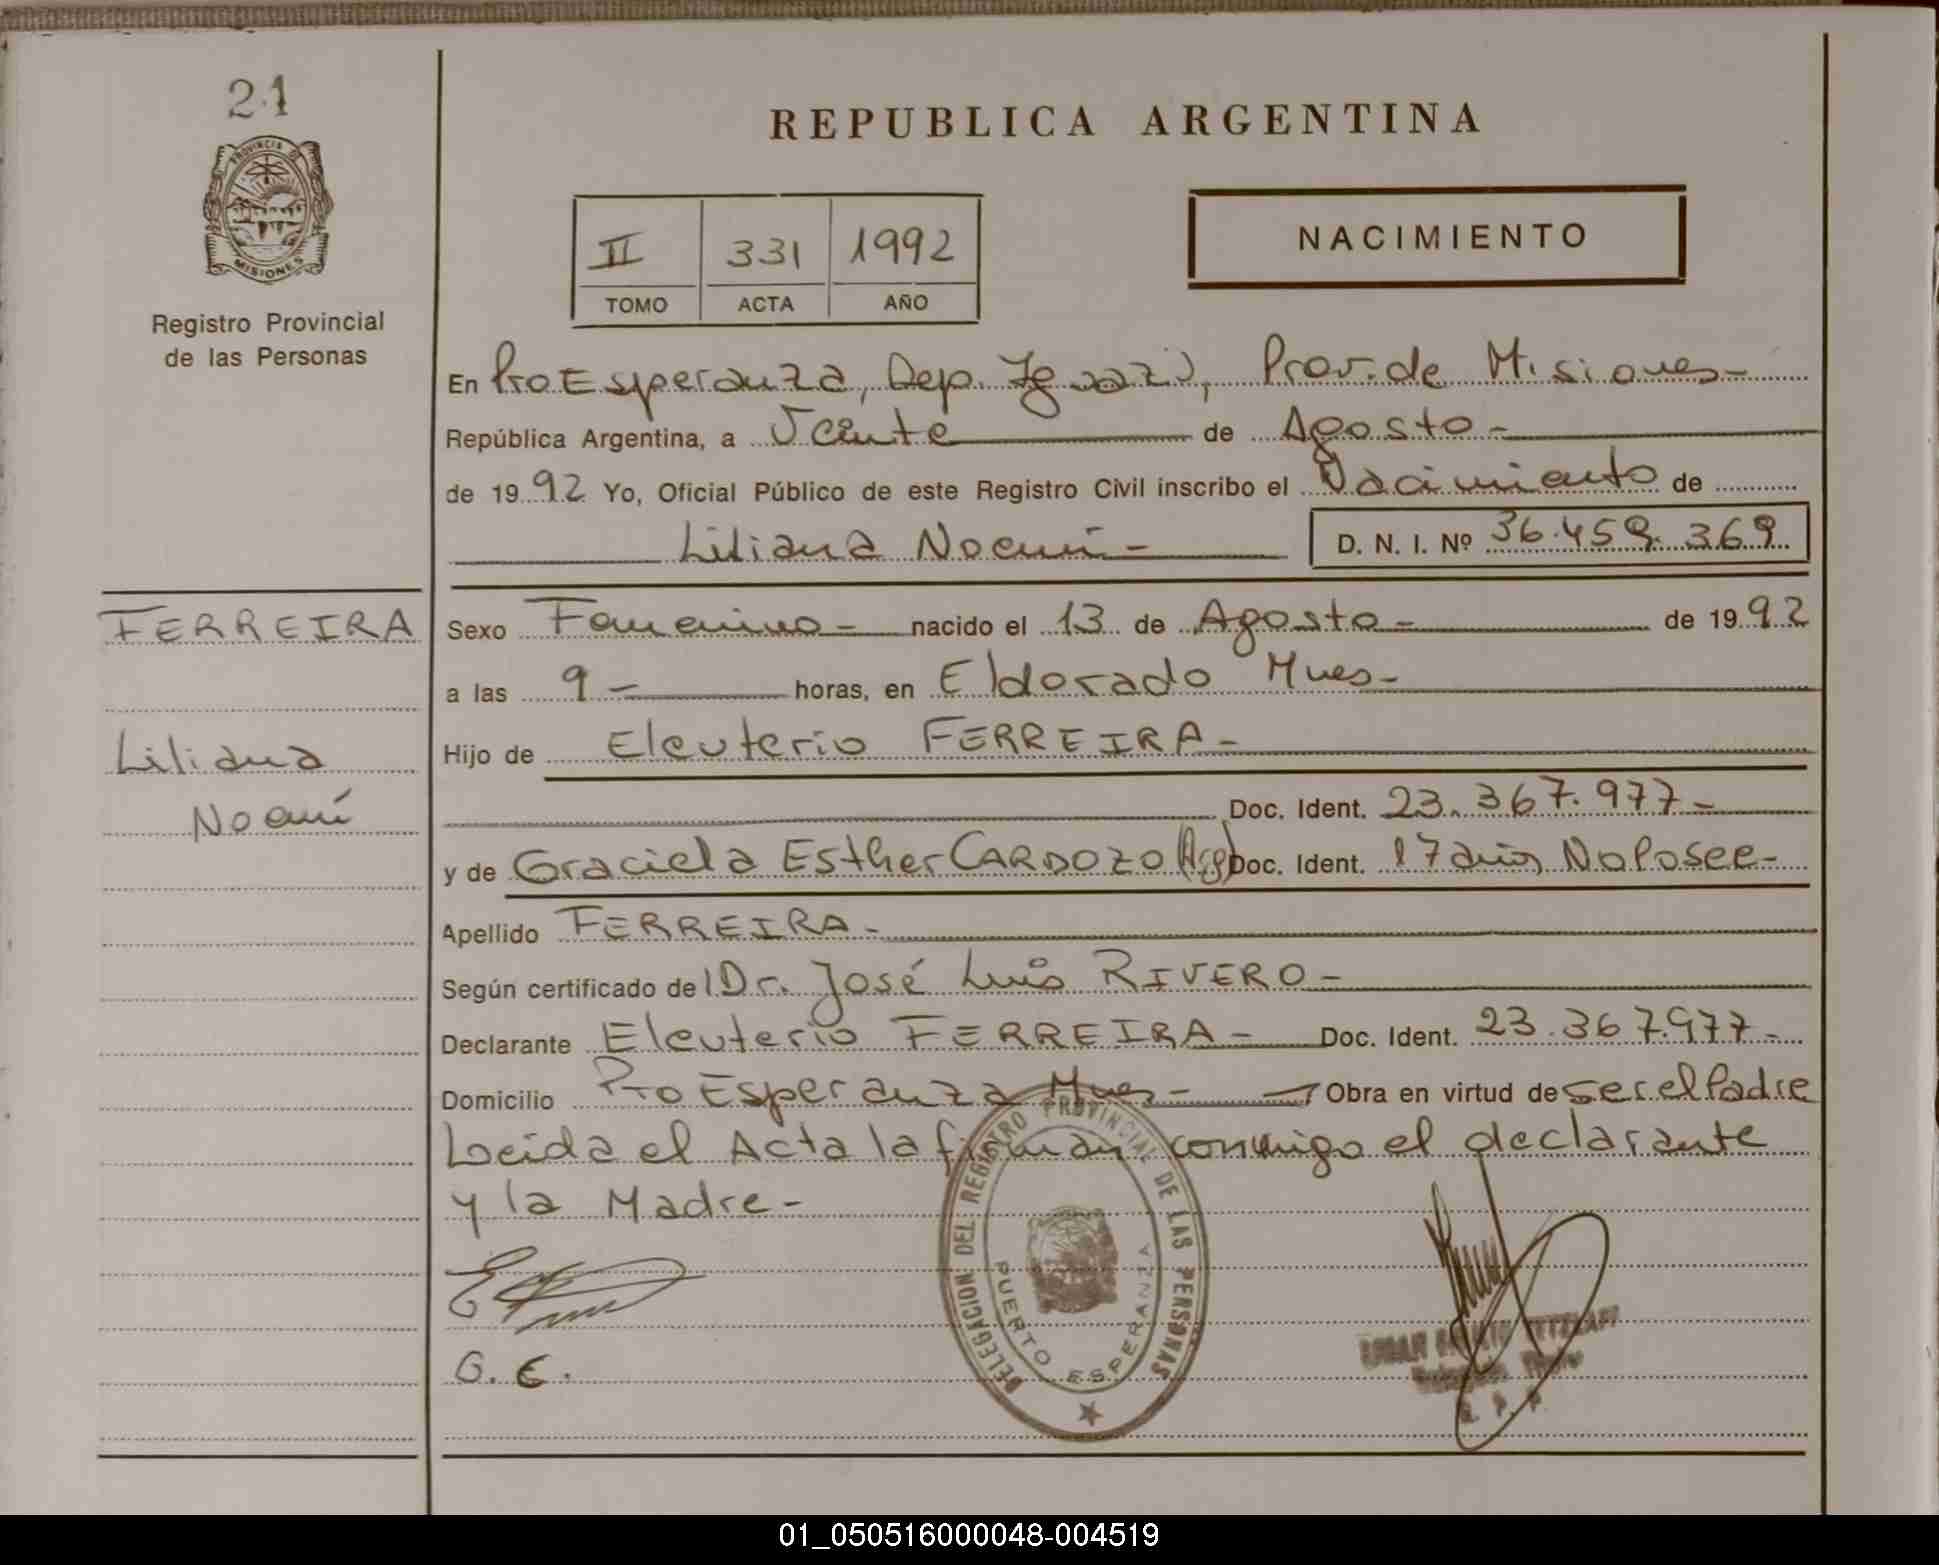 21
PROVINCIA DE
MISIONES
Registro Provincial
de las Personas
REPUBLICA ARGENTINA
II 331 1992
TOMO ACTA AÑO
NACIMIENTO
En Pto Esperanza, Dep. Iguazú, Prov. de Misiones-
República Argentina, a Veinte de Agosto-
de 1992 Yo, Oficial Público de este Registro Civil inscribo el Nacimiento de
Liliana Noemí- D. N. I. Nº 36.459.369
FERREIRA
Liliana
Noemí
Sexo Femenino- nacido el 13 de Agosto- de 1992
a las 9- horas, en Eldorado Mnes-
Hijo de Eleuterio FERREIRA-
Doc. Ident. 23.367.977-
y de Graciela Esther CARDOZO (Arg) Doc. Ident. 17 años No Posee-
Apellido FERREIRA-
Según certificado del Dr. José Luis RIVERO-
Declarante Eleuterio FERREIRA- Doc. Ident. 23.367.977-
Domicilio Pto Esperanza Mnes- Obra en virtud de ser el Padre
Leida el Acta la firman conmigo el declarante
y la Madre-
DELEGACION DEL REGISTRO PROVINCIAL DE LAS PERSONAS
PUERTO ESPERANZA
G. E.
01_050516000048-004519